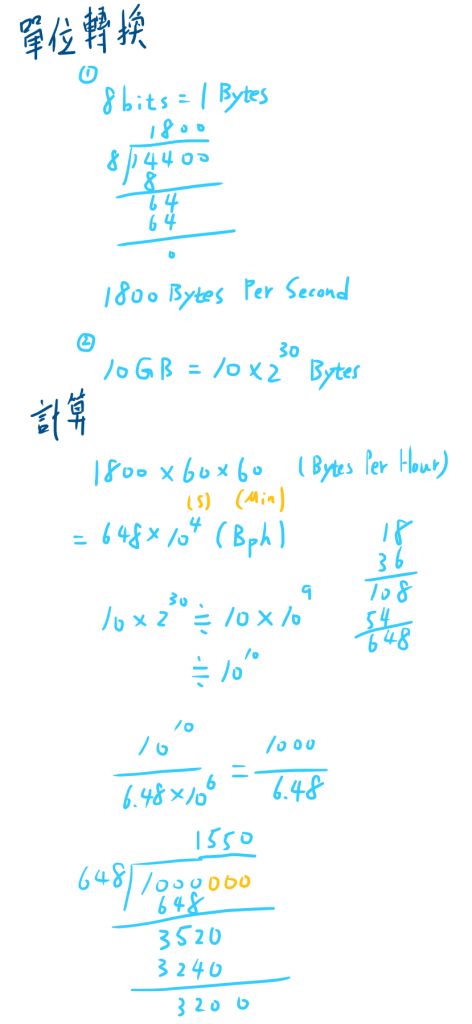 單位轉換
①
8bits = 1 Bytes
1800
8 14400
8
64
64
0
1800 Bytes Per Second
②
10GB = 10 × 2^30 Bytes
計算
1800 × 60 × 60 (Bytes Per Hour)
(s) (Min)
= 648 × 10^4 (Bph)
18
36
108
54
648
10 × 2^30 ≒ 10 × 10^9
≒ 10^10
10^10 / 6.48×10^6 = 1000 / 6.48
1550
648 1000000
648
3520
3240
3200